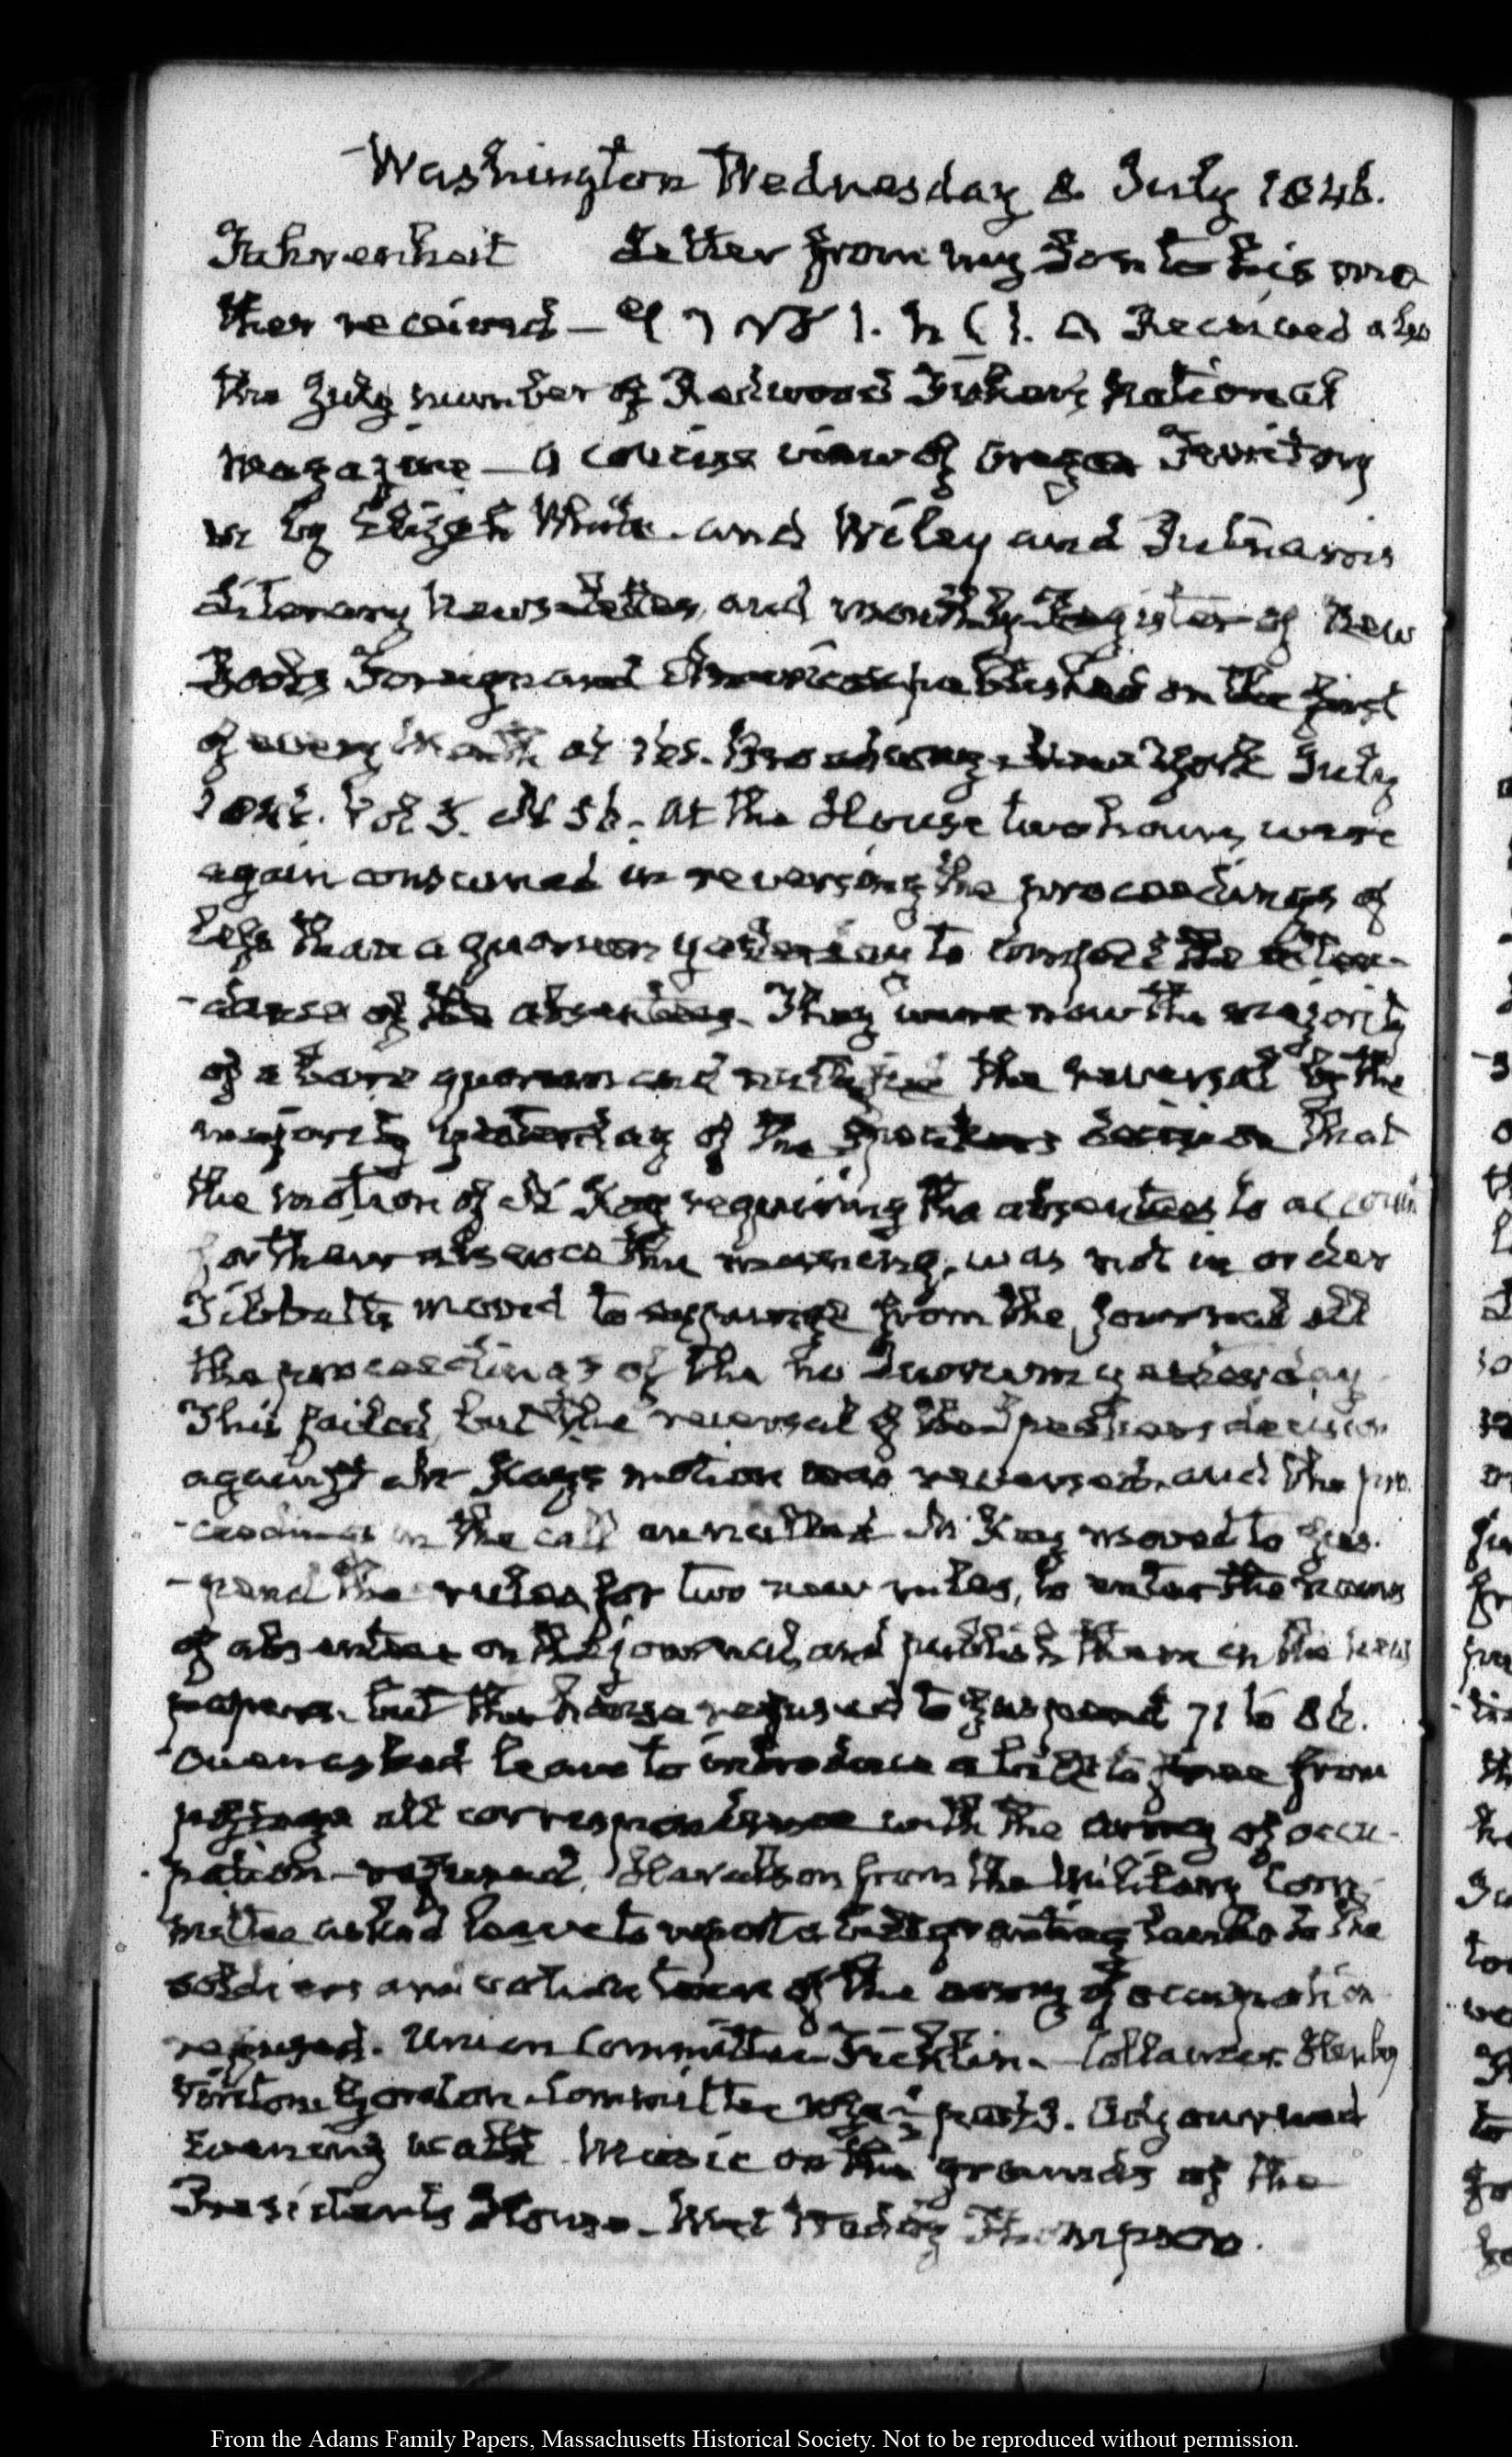 Washington Wednesday 8. July 1846.
Fahrenheit Letter from my Son to his mo
ther received — Received also
the July number of Redwood Fisher's National
Magazine — A concise view of Oregon Territory
by Elijah White. and Wiley and Putnam's
Literary News-Letter, and monthly Register of New
Books Foreign and American published on the first
of every month at Broadway, New York July
1846. Vol 5. N 56. At the House two hours were
again consumed in reversing the proceedings of
less than a quorum yesterday to compel the atten-
-dance of the absentees. They were now the majority
of a bare quorum and the reversal by the
majority yesterday of the Speakers decision that
the motion of Mr King requiring the absentees to account
for their absence this morning, was not in order
Tibbatts moved to expunge from the journal all
the proceedings of the no Quorum yesterday
This failed, but the reversal of the Speakers decision
against Mr Kings motion was reversed, and the pro
-ceedings in the call annulled Mr King moved to sus-
-pend the rules, for two new rules, to enter the names
of absentees on the journal, and publish them in the news
papers. but the house refused to suspend 71 to 86.
Owen asked leave to introduce a bill to free from
postage all correspondence with the army of occu-
pation—refused. Haralson from the Military Com-
mittee asked leave to report a bill granting lands to the
soldiers and of the army of occupation
refused. Union Committee Ficklin. Collamer.
Committee past 3. Adjourned
Evening walk Music on the grounds of the
Presidents House. Met Waddy Thompson.
From the Adams Family Papers, Massachusetts Historical Society. Not to be reproduced without permission.